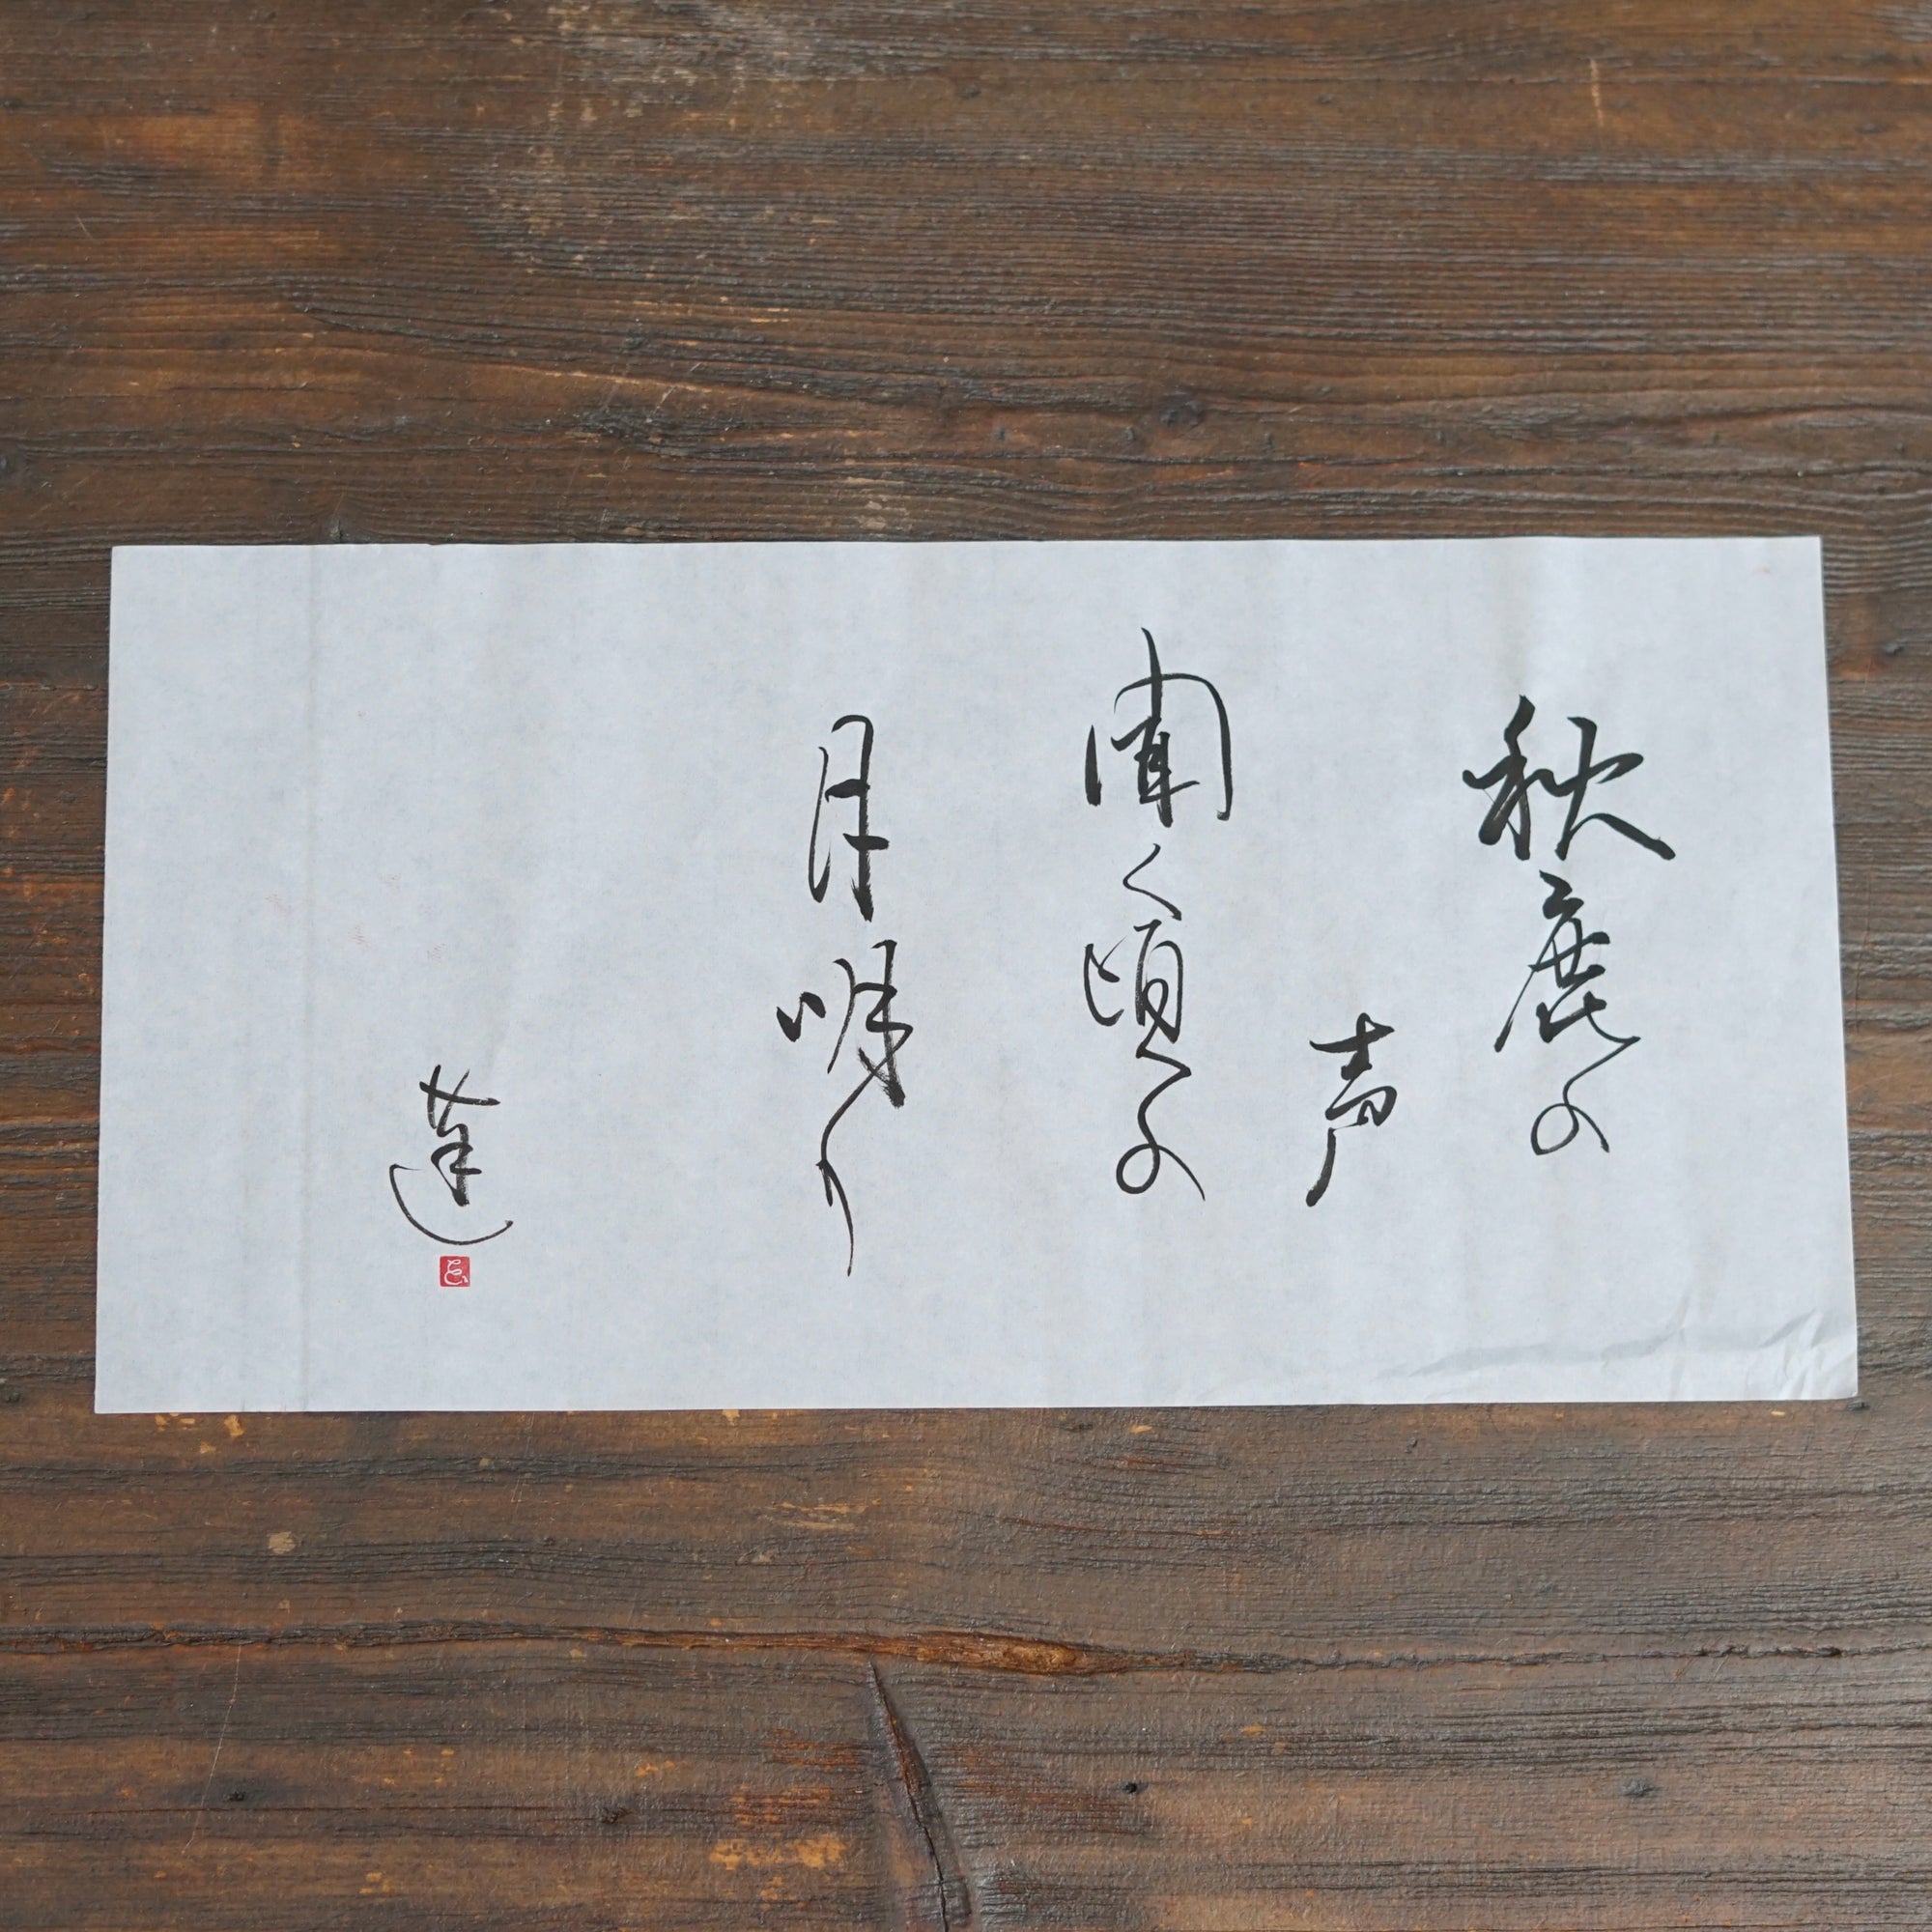 秋鹿の
声
聞く頃の
月明り
蓬